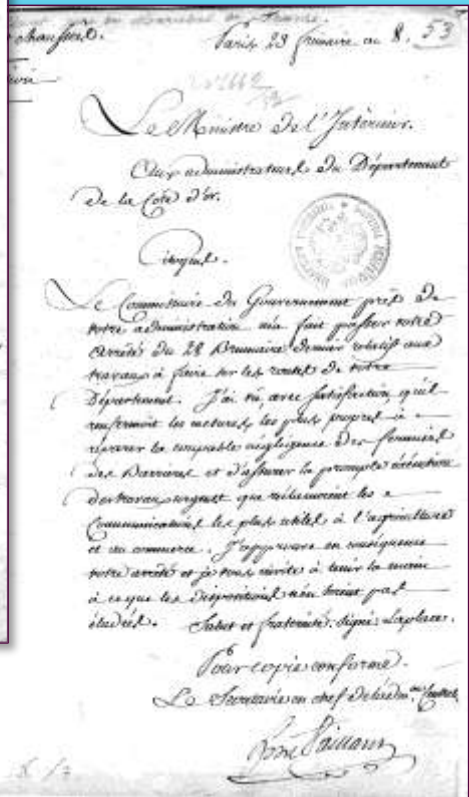 chaussées.
Paris 23 frimaire an 8. 53
Le Ministre De l'Intérieur.
Aux administrateurs du Département
de la Cote d'or.
Citoyens.
Le Commissaire du Gouvernement près De
votre administration m'a fait passer votre
arrêté du 28 Brumaire dernier relatif aux
travaux à faire sur les routes de votre
Département. J'ai vu avec satisfaction qu'il
renfermoit les mesures les plus propres à
reparer la coupable négligence des fermiers
des Barrieres et d'assurer la prompte exécution
des travaux urgents que reclament les
Communications les plus utiles à l'agriculture
et au commerce. J'approuve en conséquence
votre arrêté et je vous invite à tenir la main
à ce que les Dispositions n'en soient pas
éludées. Salut et fraternité. Signé Laplace.
Pour copie conforme.
Le Secretaire en chef de l'adm.on Centrale
Vaillant